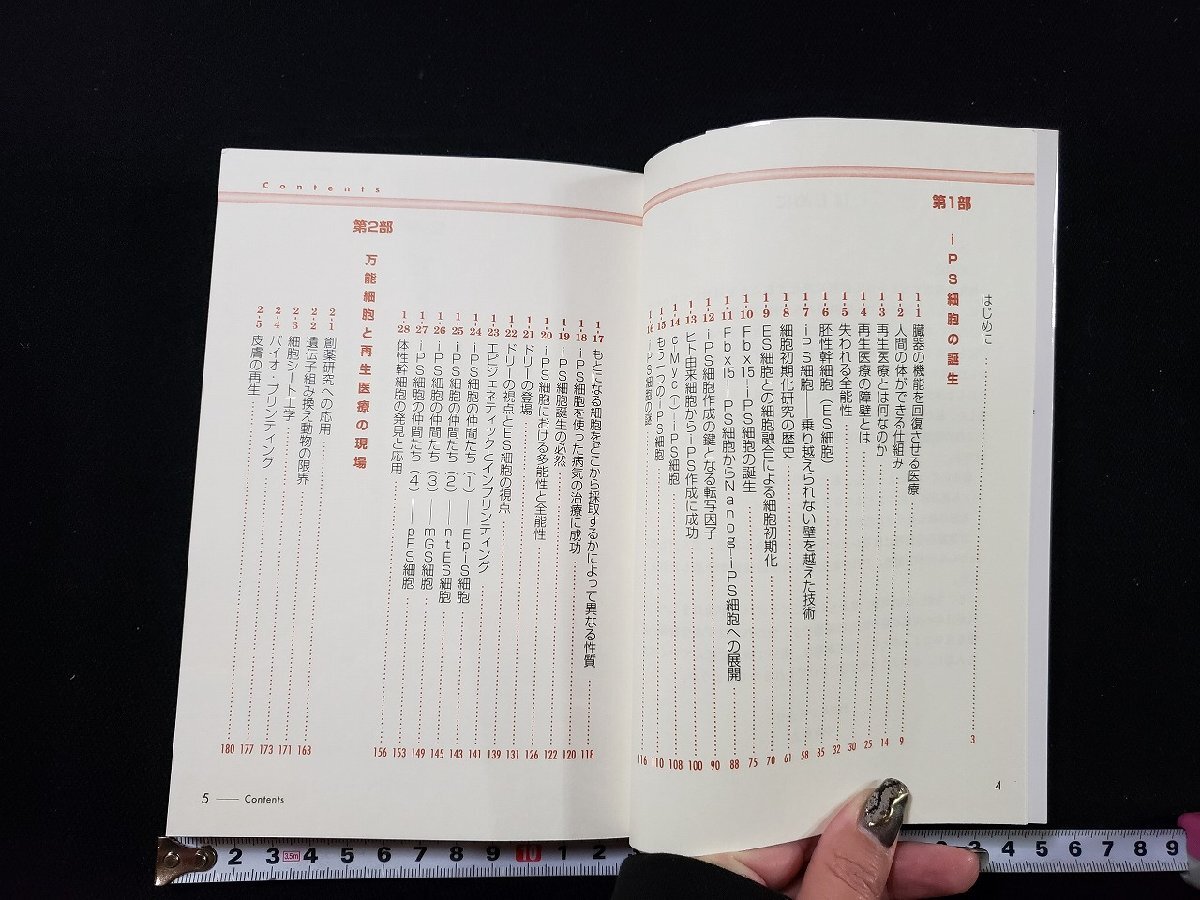 第1部 iPS細胞の誕生
はじめに 3
1-1 臓器の機能を回復させる医療 9
1-2 人間の体ができる仕組み 14
1-3 再生医療とは何なのか 25
1-4 再生医療の障壁とは 30
1-5 失われる全能性 32
1-6 胚性幹細胞(ES細胞) 35
1-7 iPS細胞――乗り越えられない壁を越えた技術 58
1-8 細胞初期化研究の歴史 61
1-9 ES細胞との細胞融合による細胞初期化 70
1-10 Fbx15―iPS細胞の誕生 75
1-11 Fbx15―iPS細胞からNanog―iPS細胞への展開 88
1-12 iPS細胞作成の鍵となる転写因子 90
1-13 ヒト由来細胞からiPS作成に成功 100
1-14 c-Myc(-)iPS細胞 108
1-15 もう一つのiPS細胞 110
1-16 iPS細胞の謎 116
4
Contents
1-17 もとになる細胞をどこから採取するかによって異なる性質 118
1-18 iPS細胞を使った病気の治療に成功 120
1-19 iPS細胞誕生の必然 122
1-20 iPS細胞における多能性と全能性 126
1-21 ドリーの登場 131
1-22 ドリーの視点とES細胞の視点 139
1-23 エピジェネティックとインプリンティング 141
1-24 iPS細胞の仲間たち(1)――EpiS細胞 143
1-25 iPS細胞の仲間たち(2)――ntES細胞 145
1-26 iPS細胞の仲間たち(3)――mGS細胞 149
1-27 iPS細胞の仲間たち(4)――pES細胞 153
1-28 体性幹細胞の発見と応用 156
第2部 万能細胞と再生医療の現場
2-1 創薬研究への応用 163
2-2 遺伝子組み換え動物の限界 171
2-3 細胞シート工学 173
2-4 バイオ・プリンティング 177
2-5 皮膚の再生 180
5 ―― Contents
2 3 3.5m 4 5 6 7 8 9 10 1 2
3 4 5 6 7 8 9